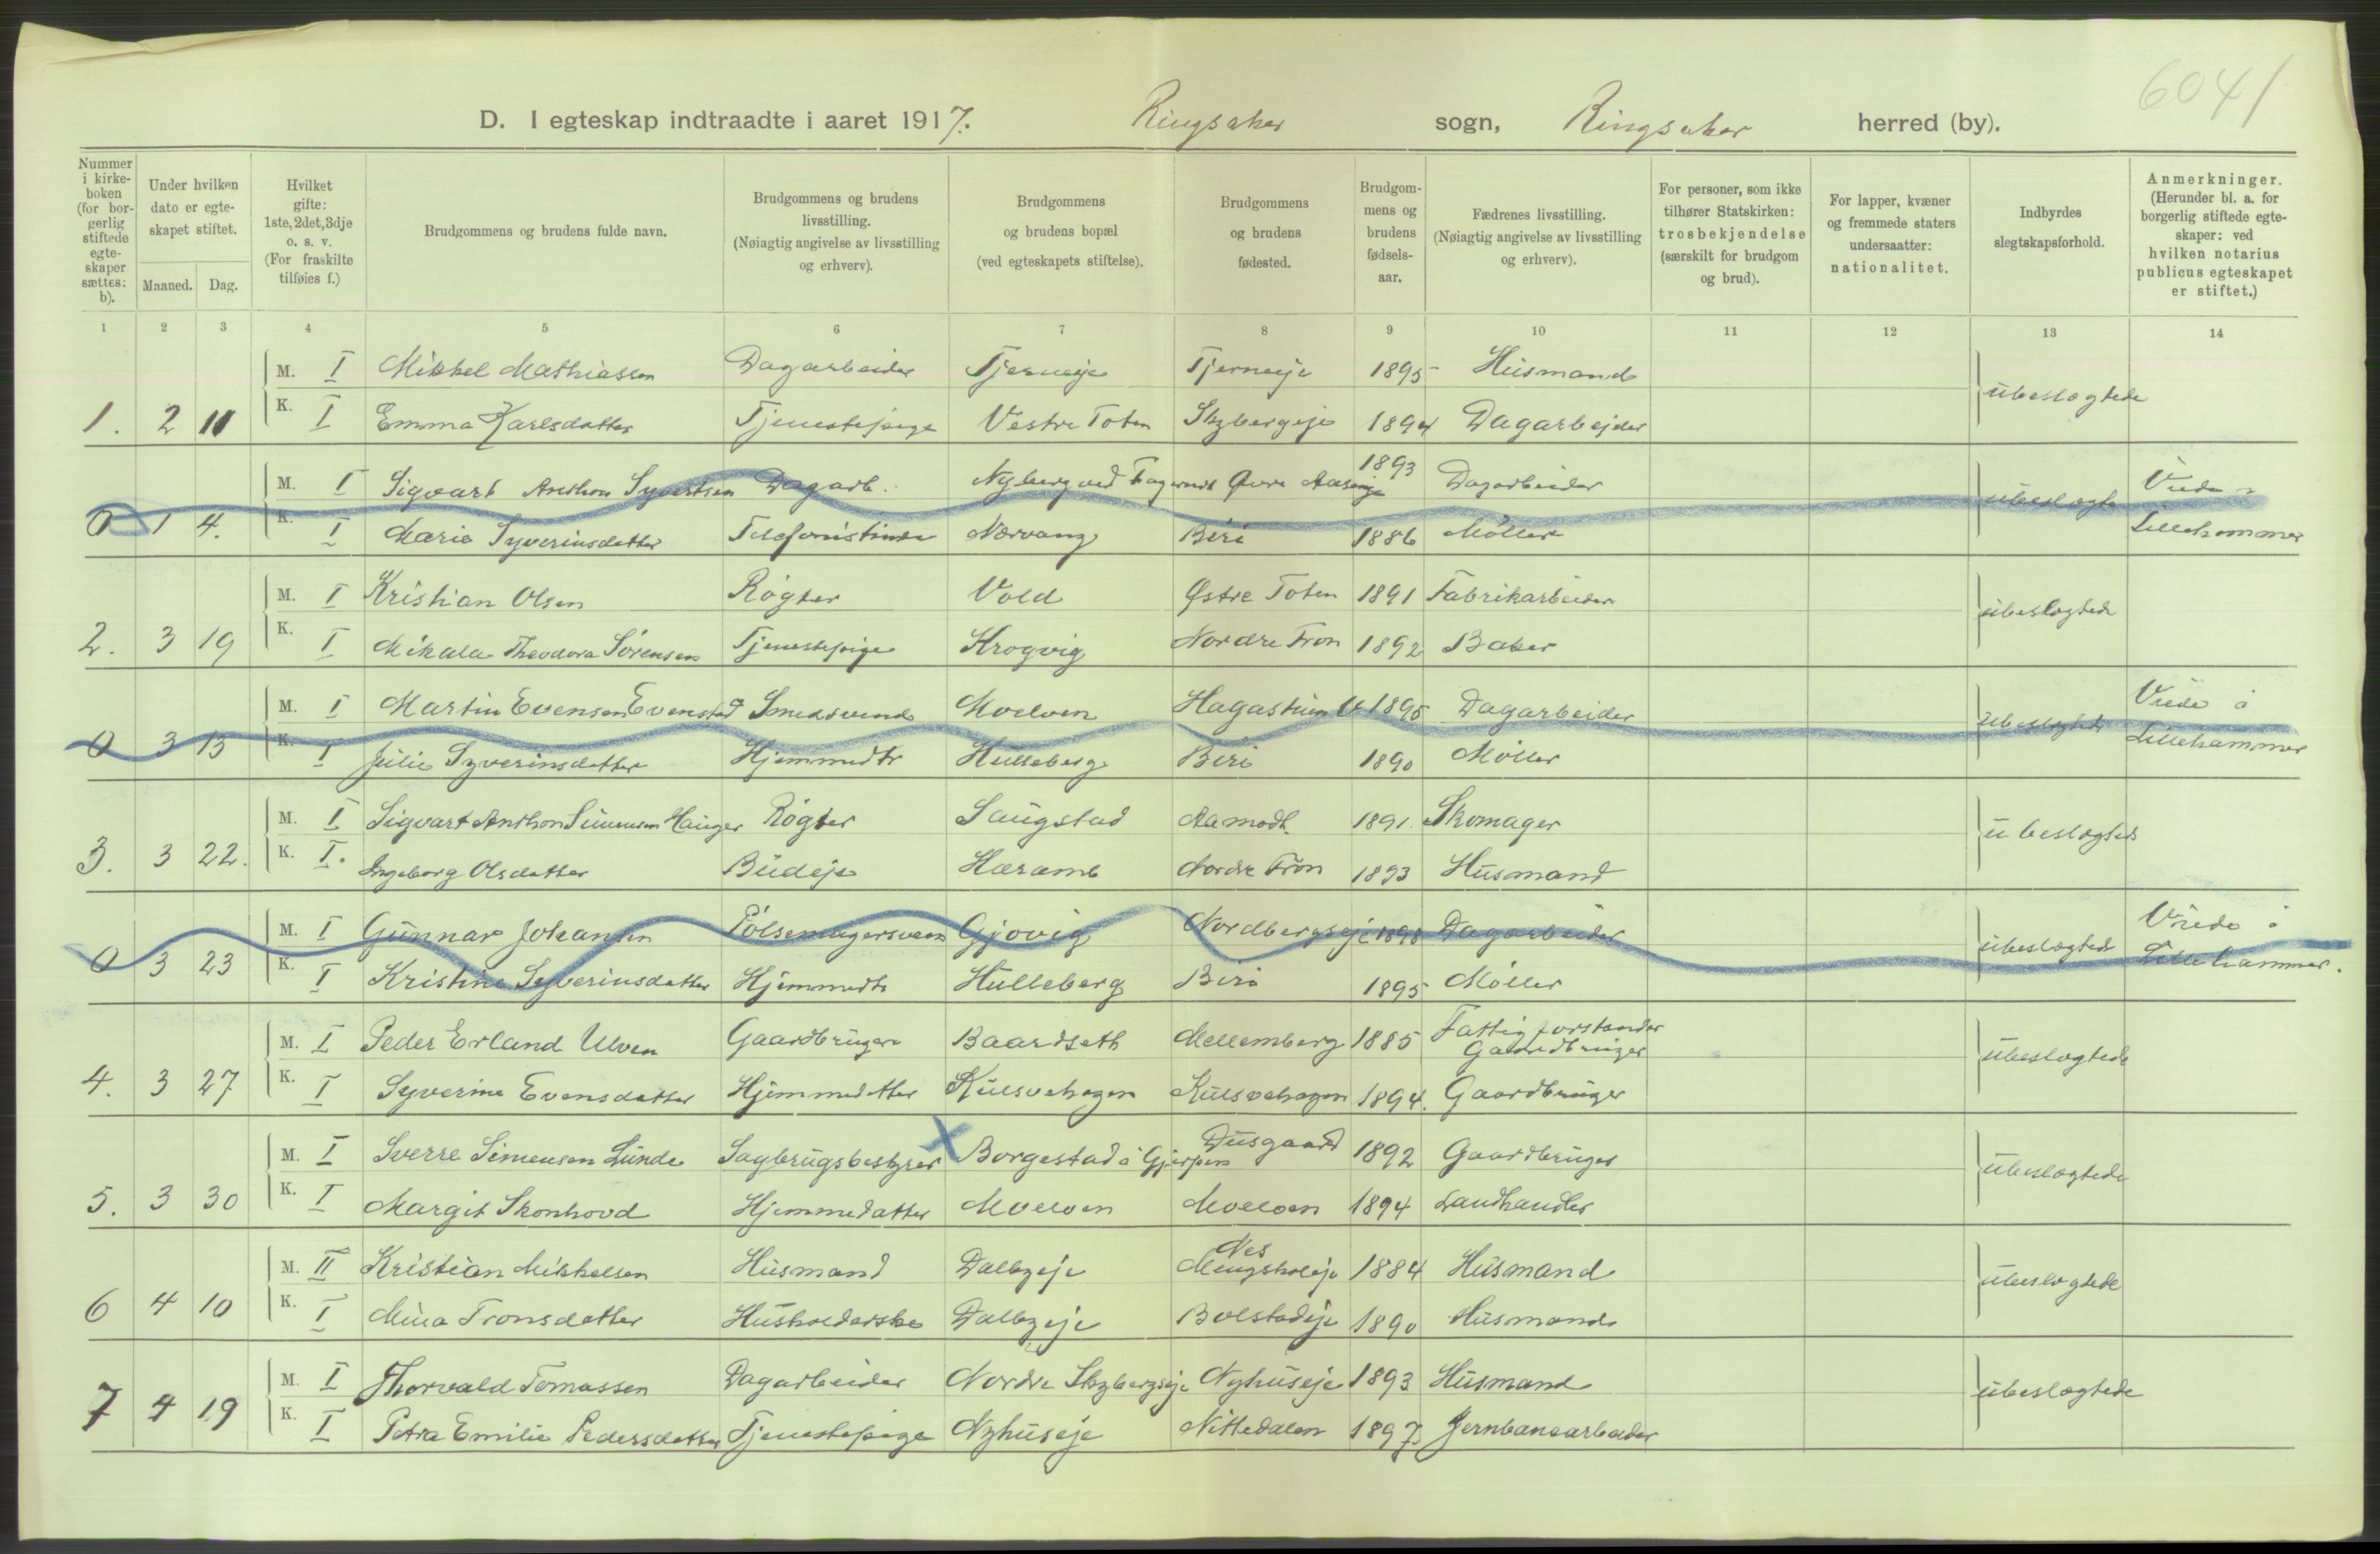 6041
D. I egteskap indtraadte i aaret 1917. Ringsaker sogn, Ringsaker herred (by).
Nummer i kirke-boken (for bor-gerlig stiftede egte-skaper sættes: b).
Under hvilken dato er egte-skapet stiftet.
Maaned. Dag.
Hvilket gifte: 1ste, 2det, 3dje o. s. v. (For fraskilte tilføies f.)
Brudgommens og brudens fulde navn.
Brudgommens og brudens livsstilling. (Nøiagtig angivelse av livsstilling og erhverv).
Brudgommens og brudens bopæl (ved egteskapets stiftelse).
Brudgommens og brudens fødested.
Brudgom-mens og brudens fødsels-aar.
Fædrenes livsstilling. (Nøiagtig angivelse av livsstilling og erhverv).
For personer, som ikke tilhører Statskirken: trosbekjendelse (særskilt for brudgom og brud).
For lapper, kvæner og fremmede staters undersaatter: nationalitet.
Indbyrdes slegtskapsforhold.
Anmerkninger. (Herunder bl. a. for borgerlig stiftede egte-skaper: ved hvilken notarius publicus egteskapet er stiftet.)
1 2 3 4 5 6 7 8 9 10 11 12 13 14
M. I Mikkel Mathiassen Dagarbeider Tjerneje Tjerneje 1895 Husmand
ubeslegtede
1. 2 11 K. I Emma Karlsdatter Tjenestepige Vestre Toten Skybergeje 1894 Dagarbejder
M. I Sigvart Anthon Syvertsen Dagarb. Nyberg ved Øvre 1893 Dagarbeider
ubeslegte Viede i
0 1 4. K. I Marie Syverinsdatter Telefonistinde Nærvang Biri 1886 Møller Lillehammer
M. I Kristian Olsen Røgter Vold Østre Toten 1891 Fabrikarbeider
ubeslegtede
2. 3 19 K. I Mikala Theodora Sørensen Tjenestepige Krogvig Nordre Fron 1892 Baker
M. I Martin Evensen Evenstad Smedsvend Moelven 1895 Dagarbeider
ubeslegtede Viede i
0 3 13 K. I Julie Syverinsdatter Hjemmedtr Hulleberg Biri 1890 Møller Lillehammer
M. I Sigvart Anthon Simensen Hauger Røgter Saugstad Aamodt 1891. Skomager
ubeslegtede
3. 3 22. K. I. Ingeborg Olsdatter Budeje Hæramb Nordre Fron 1893 Husmand
M. I Gunnar Johansen Pølsemagersvend Gjøvig Nordbergseje 1898 Dagarbeider
ubeslegtede Viede i
0 3 23 K. I Kristine Syverinsdatter Hjemmedtr Hulleberg Biri 1895 Møller Lillehammer.
M. I Peder Erland Ulven Gaardbruger Baardseth Mellemberg 1885 Fattigforstander
Gaardbruger
ubeslegtede
4. 3 27 K. I Syverine Evensdatter Hjemmedatter Kulsvehagen Kulsvehagen 1894. Gaardbruger
M. I Sverre Simensen Lunde Sagbrugsbestyrer X Borgestad i Gjerpen Dusgaard 1892 Gaardbruger
ubeslegtede
5. 3 30 K. I Margit Skonhovd Hjemmedatter Moelven Moelven 1894 Landhandler
Nes
M. II Kristian Mikkelsen Husmand Dalbyeje Mengsholeje 1884 Husmand
ubeslegtede
6 4 10 K. I Mina Tronsdatter Husholderske Dalbyeje Bolstadeje 1890 Husmand
M. I Thorvald Tomassen Dagarbeider Nordre Skybergseje Nyhuseje 1893 Husmand
ubeslegtede
7 4 19 K. I Petra Emilie Pedersdatter Tjenestepige Nyhuseje Nittedalen 1897 Jernbanearbeider